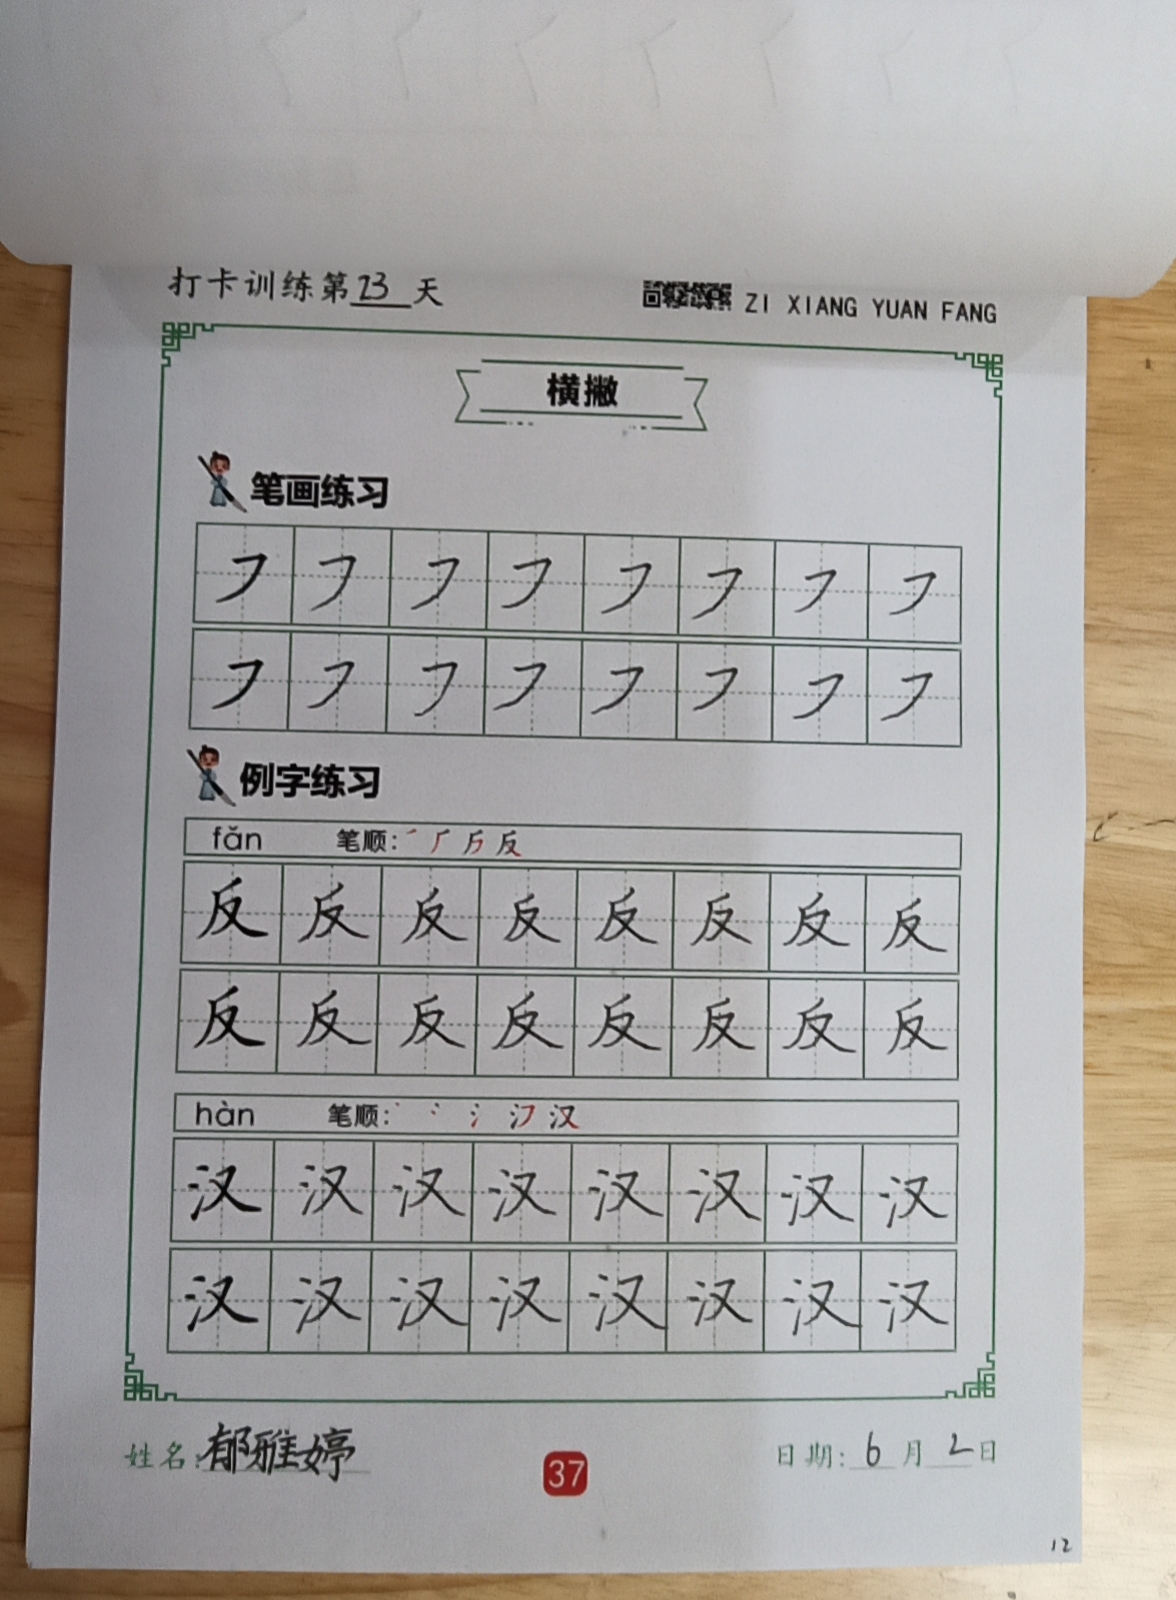 打卡训练第23天
ZI XIANG YUAN FANG
横撇
笔画练习
㇇ ㇇ ㇇ ㇇ ㇇ ㇇ ㇇ ㇇
㇇ ㇇ ㇇ ㇇ ㇇ ㇇ ㇇ ㇇
例字练习
fǎn 笔顺: ㇒ 𠂆 反
反 反 反 反 反 反 反 反
反 反 反 反 反 反 反 反
hàn 笔顺: 丶 冫 氵 汉
汉 汉 汉 汉 汉 汉 汉 汉
汉 汉 汉 汉 汉 汉 汉 汉
姓名: 郁雅婷
37
日期: 6月2日
12